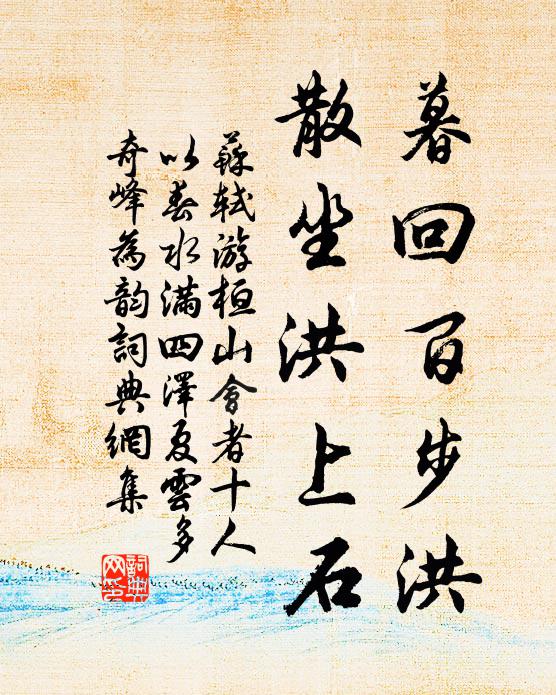 暮回百步洪
散坐洪上石
蘇軾游桓山會者十人
以春水滿四澤夏雲多
奇峰為韵詞典網集
詞典
网集